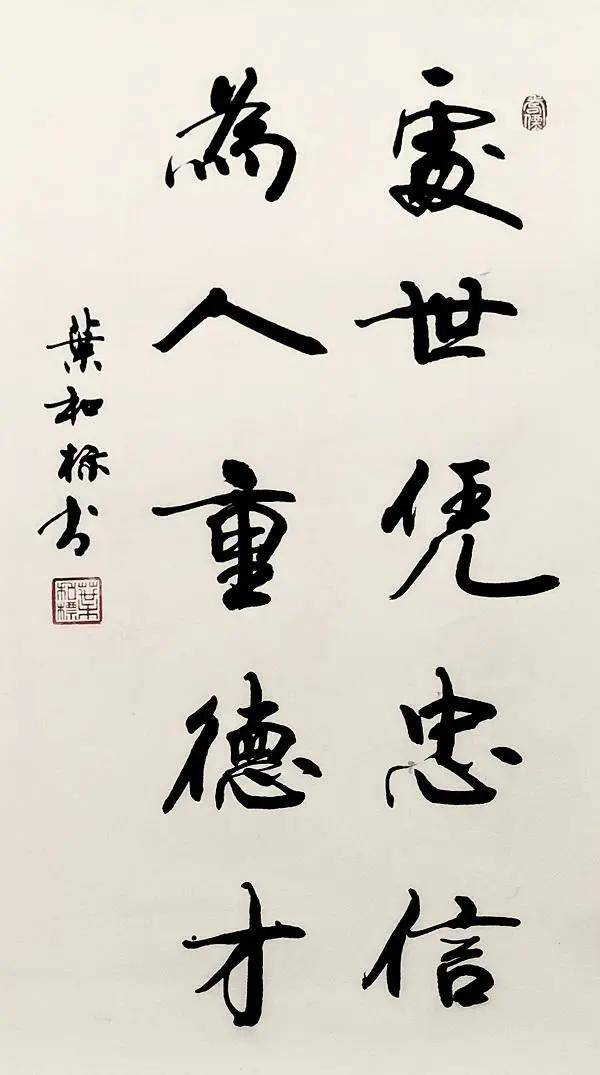 處世凭忠信
為人重德才
葉和标书
葉和標